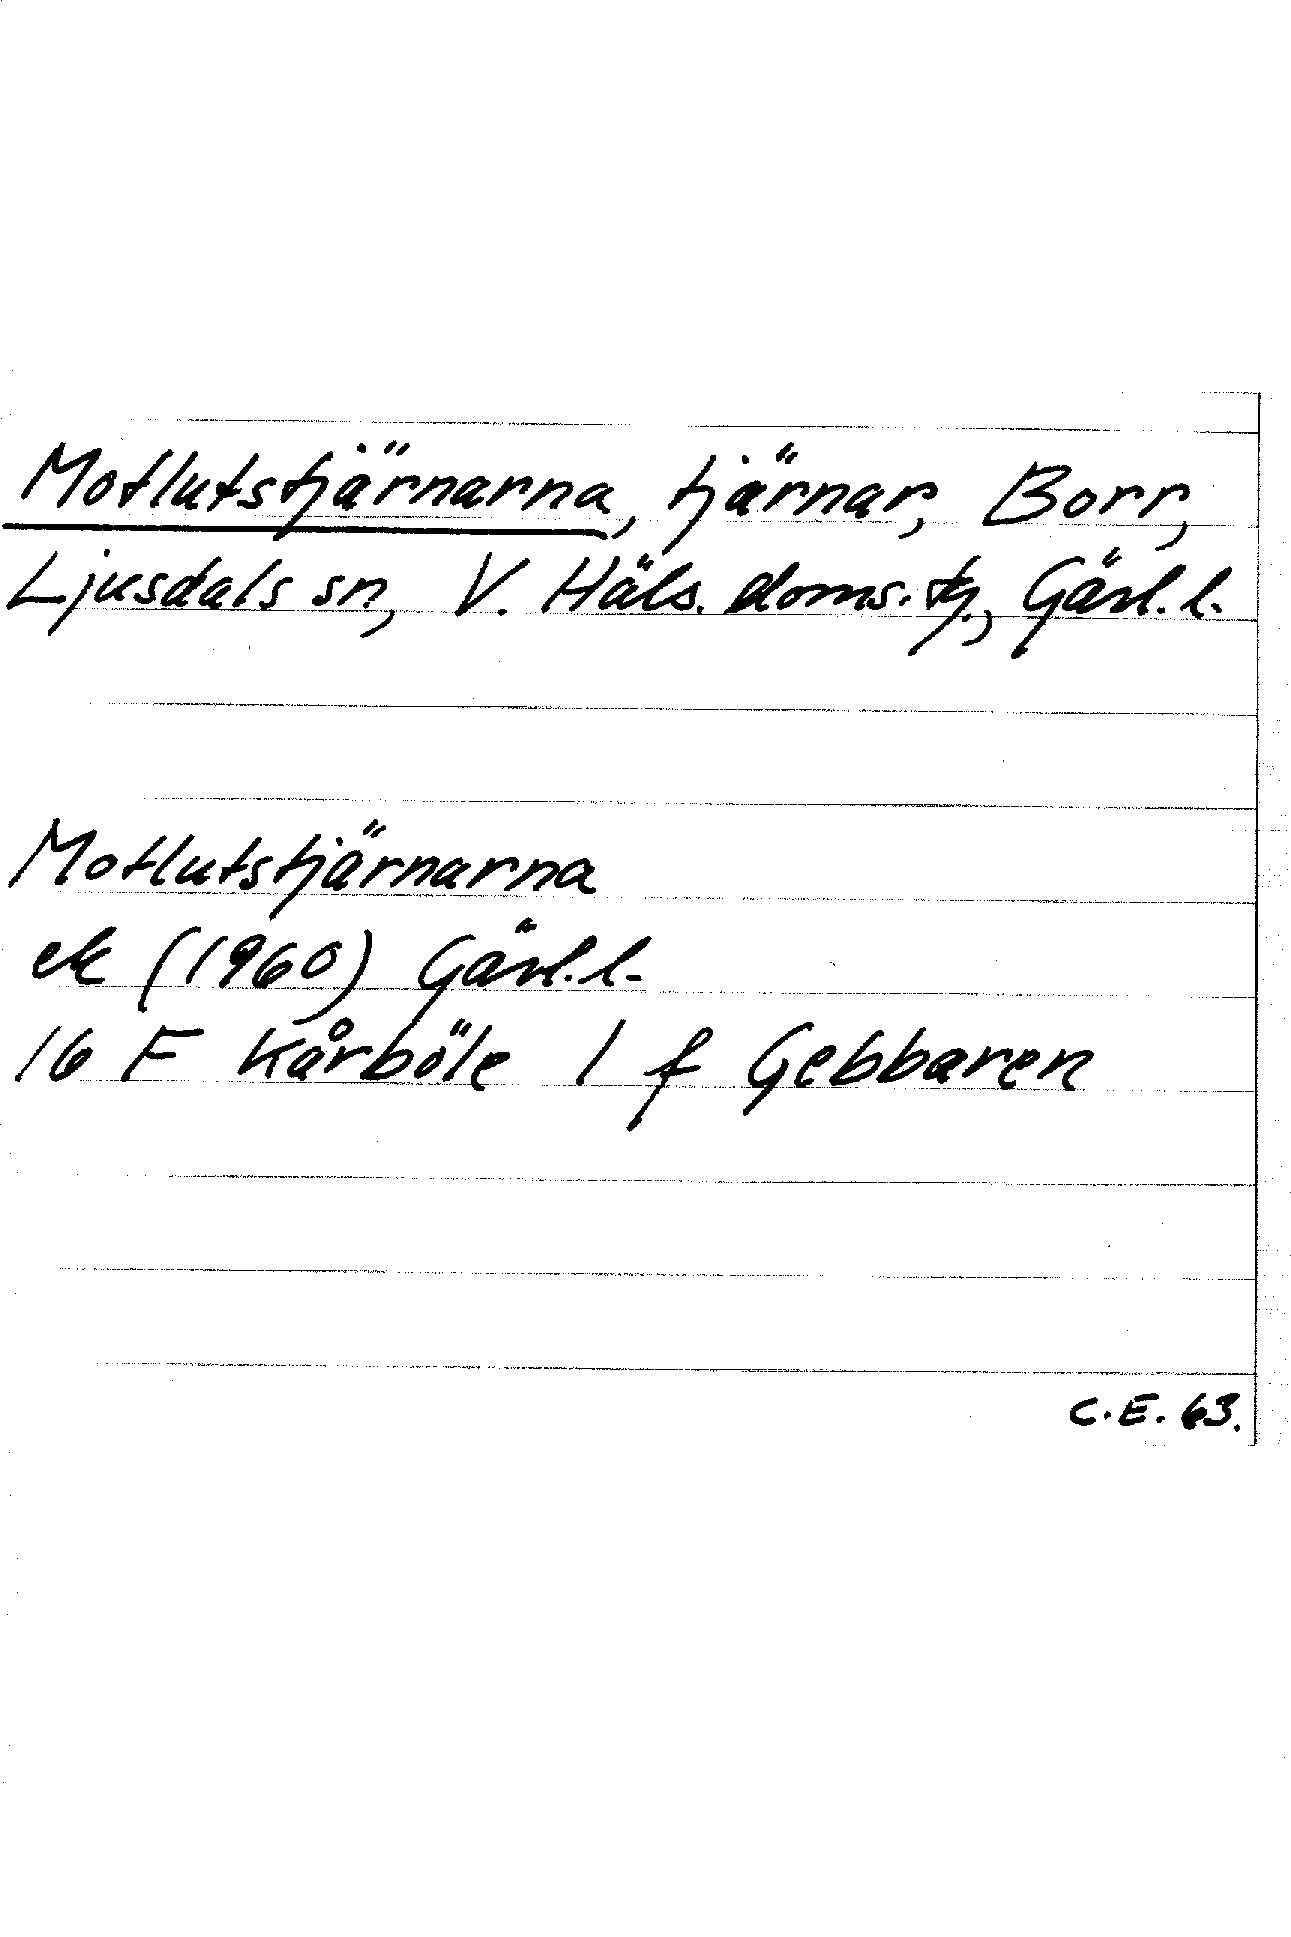 Motlutstjärnarna, tjärnar, Borr,
Ljusdals sn, V. Häls. doms. tg., Gävl. l.
Motlutstjärnarna
ek (1960) Gävl. l.
16 F Kårböle 1 f Gebbaren
C.E. 63.